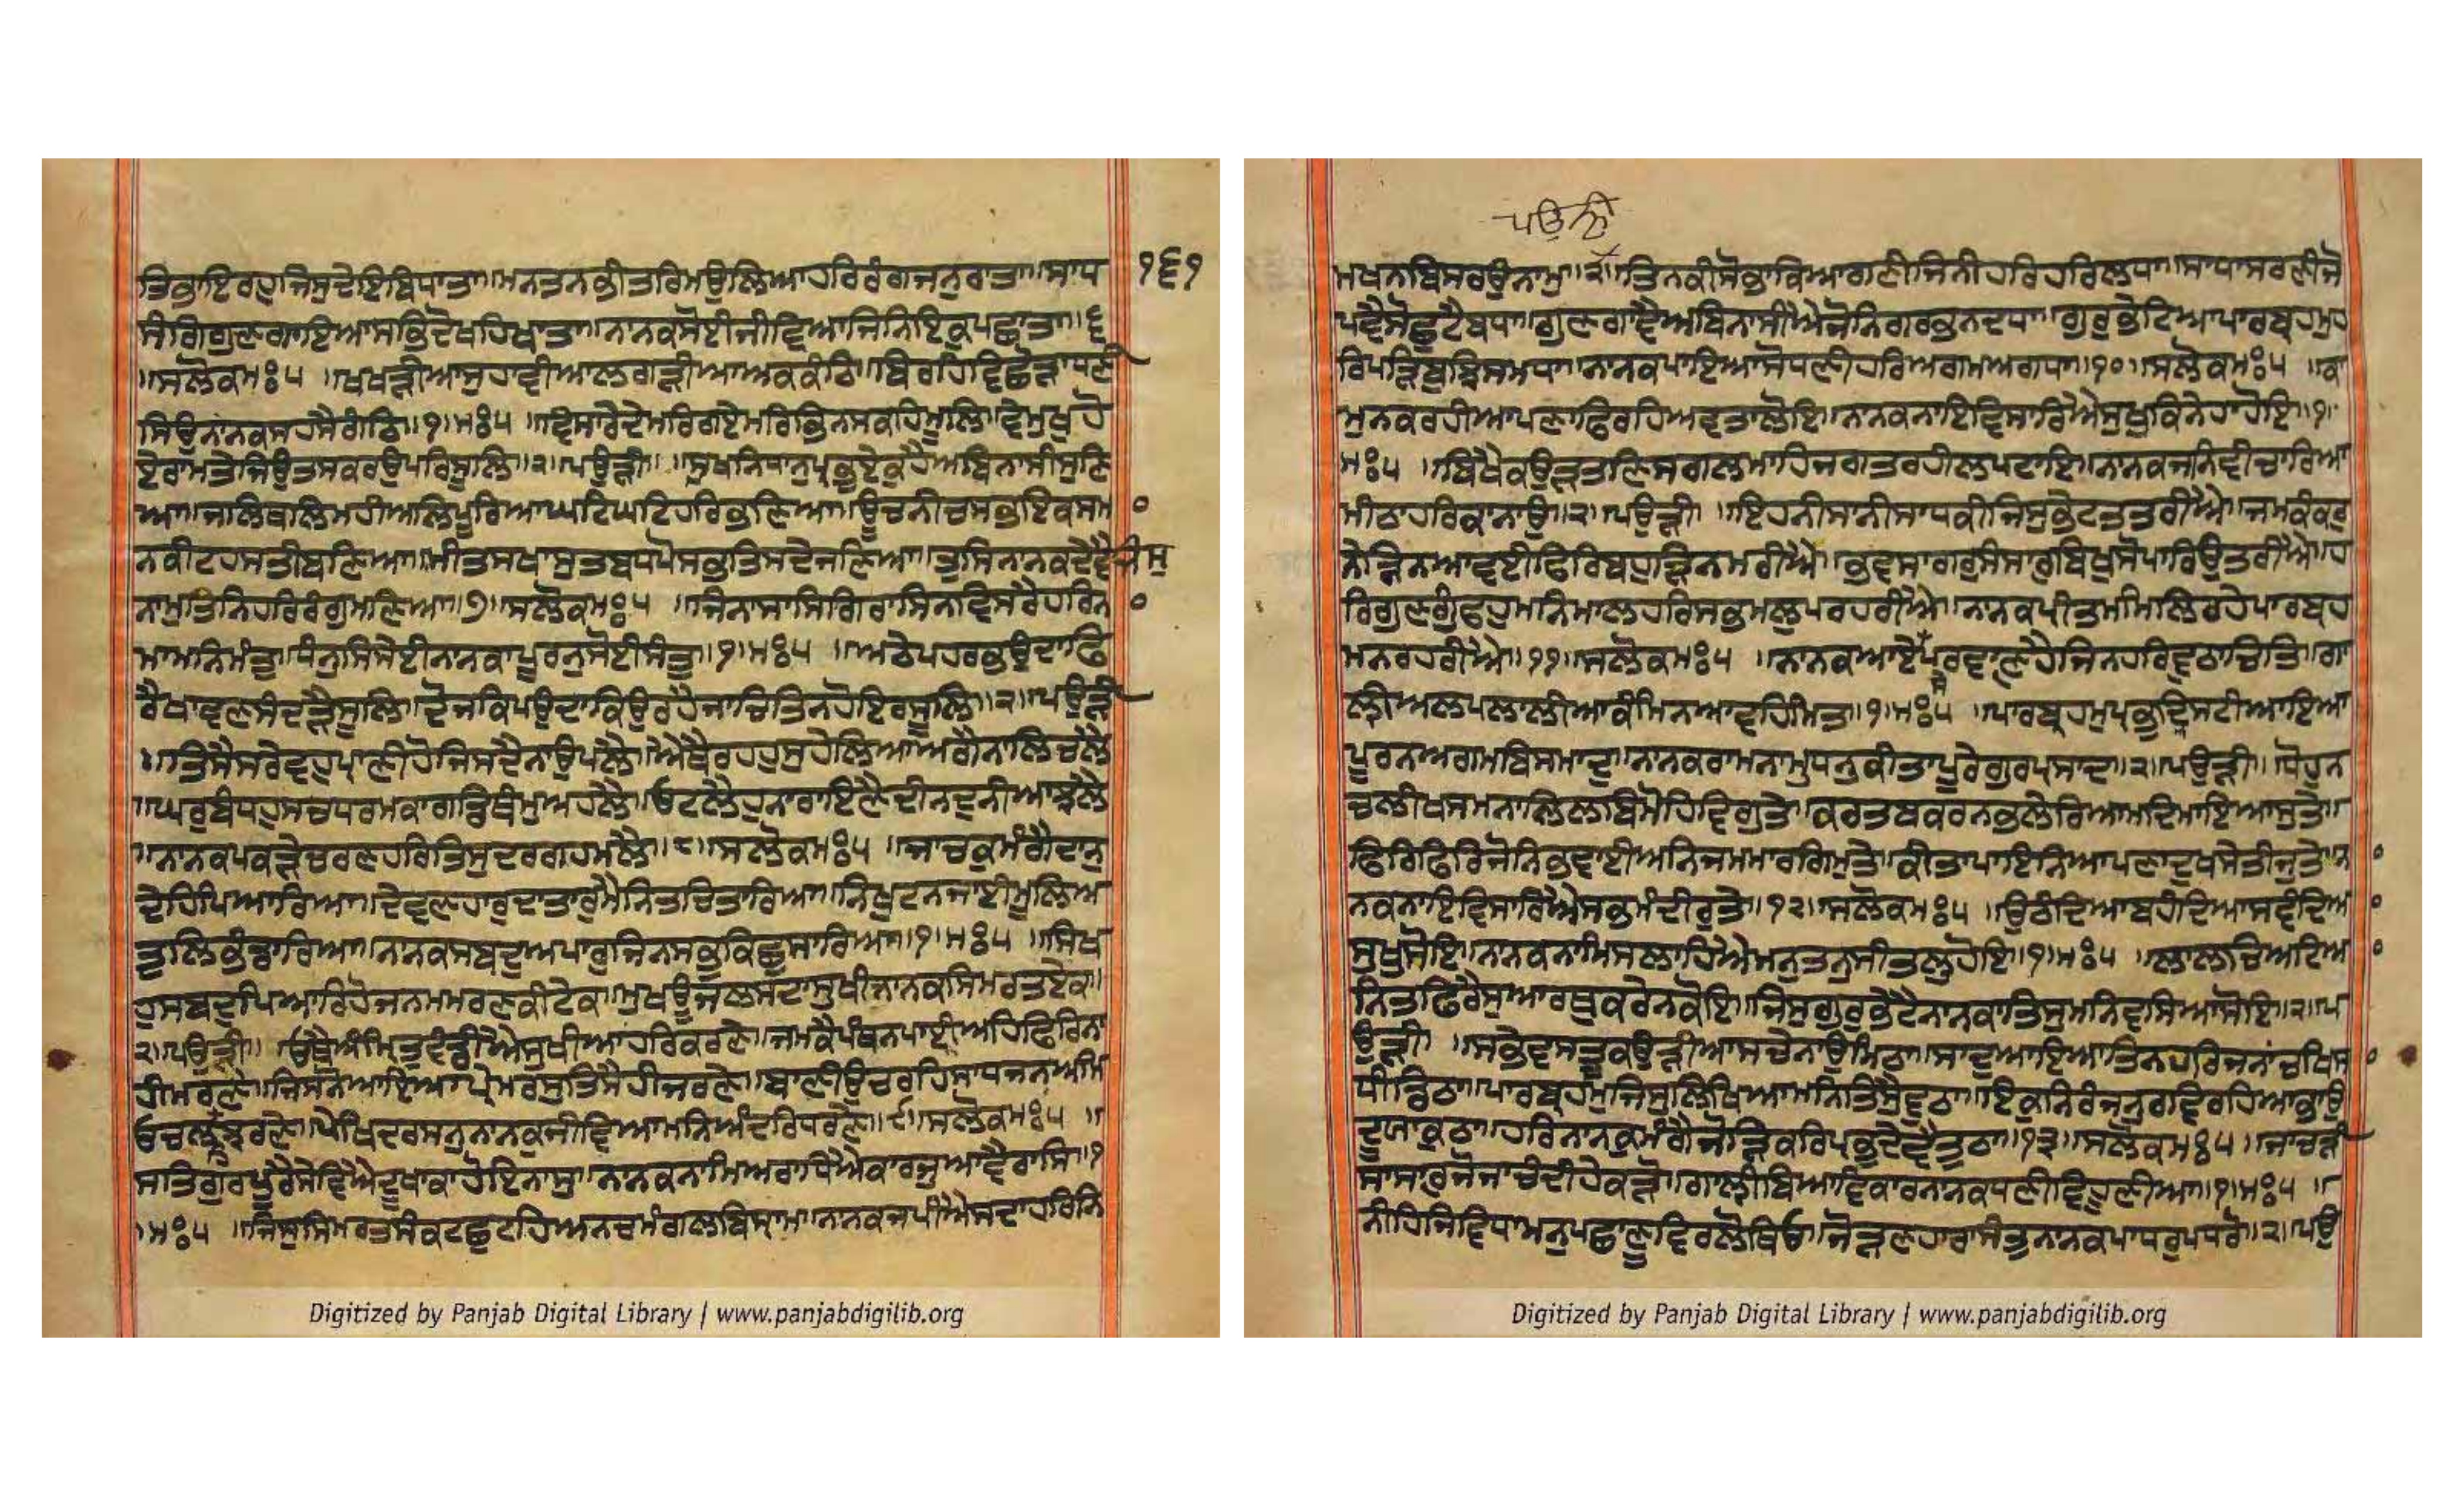 ਤਿਭਾਇਰਹੁਜਿਸੁਦੇਇਬਿਧਾਤਾ॥ਮਨਤਨਭੀਤਰਿਮਉਲਿਆਹਰਿਰੰਗਜਨੁਰਾਤਾ॥ਸਾਧ
੧੬੧
ਸੰਗਿਗੁਣਗਾਇਆਸਭਿਦੋਖਹਖਾਤਾ॥ਨਾਨਕਸੋਈਜੀਵਿਆਜਿਨਿਇਕੁਪਛਾਤਾ॥੬
॥ਸਲੋਕਮਃ੫ ॥ਖਖੜੀਆਸੁਹਾਵੀਆਲਗੜੀਆਅਕਕੰਠਿ॥ਬਿਰਹਵਿਛੋੜਾਧਣੀ
ਸਿਉਨਾਨਕਸਹਸੈਗੰਠਿ॥੧॥ਮਃ੫ ॥ਵਿਸਾਰੇਦੇਮਰਿਗਏਮਰਿਭਿਨਸਕਹਿਮੂਲਿ॥ਵੇਮੁਖਹੋ
ਏਰਾਮਤੇਜਿਉਤਸਕਰਉਪਰਿਸੂਲਿ॥੨॥ਪਉੜੀ॥ ਸੁਖਨਿਧਾਨੁਪ੍ਰਭੁਏਕੁਹੈਅਬਿਨਾਸੀਸੁਣਿ
ਆ॥ਜਲਿਥਲਿਮਹੀਅਲਿਪੂਰਿਆਘਟਿਘਟਿਹਰਿਭਣਿਆ॥ਊਚਨੀਚਸਭਇਕਸਮਾ
ਨਕੀਟਹਸਤੀਬਣਿਆ॥ਮੀਤਸਖਾਸੁਤਬਧਪੋਸਭਤਿਸਦੇਜਣਿਆ॥ਤੁਸਿਨਾਨਕਦੇਵੈਜਿਸੁ
ਨਾਮੁਤਿਨਿਹਰਿਰੰਗੁਮਣਿਆ॥੭॥ਸਲੋਕਮਃ੫ ॥ਜਿਨਾਸਾਸਿਗਿਰਾਸਿਨਵਿਸਰੈਹਰਿਨਾ
ਮਾਮਨਿਮੰਤੁ॥ਧੰਨੁਸਿਸੇਈਨਾਨਕਾਪੂਰਨੁਸੋਈਸੰਤੁ॥੧॥ਮਃ੫ ॥ਅਠੇਪਹਰਭਉਦਾਫਿ
ਰੈਖਾਵਣਸੰਦੜੈਸੂਲਿ॥ਦੋਜਕਿਪਉਦਾਕਿਉਰਹੈਜਾਚਿਤਿਨਹੋਇਰਸੂਲਿ॥੨॥ਪਉੜੀ
॥ਤਿਸੈਸਰੇਵਹੁਪ੍ਰਾਣੀਹੋਜਿਸਦੈਨਾਉਪਲੈ॥ਐਥੈਰਹਹੁਸੁਹੇਲਿਆਅਗੈਨਾਲਿਚਲੈ
॥ਘਰੁਬੰਧਹੁਸਚਧਰਮਕਾਗਡਿਥੰਮੁਅਹਲੈ॥ਓਟਲੈਹੁਨਾਰਾਇਣੈਦੀਨਦੁਨੀਆਝਲੈ
॥ਨਾਨਕਪਕੜੇਚਰਣਹਰਿਤਿਸੁਦਰਗਹਮਲੈ॥੮॥ਸਲੋਕਮਃ੫ ॥ਜਾਚਕੁਮੰਗੈਦਾਨੁ
ਦੇਹਿਪਿਆਰਿਆ॥ਦੇਵਣਹਾਰੁਦਾਤਾਰੁਮੈਨਿਤਚਿਤਾਰਿਆ॥ਨਿਖੁਟਨਜਾਈਮੂਲਿਅ
ਤੁਲਿਭੰਡਾਰਿਆ॥ਨਾਨਕਸਬਦੁਅਪਾਰੁਜਿਨਸਭੁਕਿਛੁਸਾਰਿਆ॥੧॥ਮਃ੫ ॥ਸਿਖ
ਹੁਸਬਦੁਪਿਆਰਿਹੋਜਨਮਮਰਣਕੀਟੇਕ॥ਮੁਖਊਜਲਸਦਾਸੁਖੀਨਾਨਕਸਿਮਰਤਏਕ॥
੨॥ਪਉੜੀ॥ ਓਥੈਅੰਮ੍ਰਿਤੁਵੰਡੀਐਸੁਖੀਆਹਰਿਕਰਣੇ॥ਜਮਕੈਪੰਥਨਪਾਈਅਹਿਫਿਰਿਨਾ
ਹੀਮਰਣੇ॥ਜਿਸਨੋਆਇਆਪ੍ਰੇਮਰਸੁਤਿਸੈਹੀਜਰਣੇ॥ਬਾਣੀਉਚਰਹਿਸਾਧਜਨਅਮਿ
ਓਚਲਹਿਝਰਣੇ॥ਪੇਖਿਦਰਸਨੁਨਾਨਕੁਜੀਵਿਆਮਨਿਅੰਦਰਿਧਰਣੇ॥੯॥ਸਲੋਕਮਃ੫ ॥
ਸਤਿਗੁਰਪੂਰੈਸੇਵਿਐਦੂਖਾਕਾਹੋਇਨਾਸੁ॥ਨਾਨਕਨਾਮਿਅਰਾਧਿਐਕਾਰਜੁਆਵੈਰਾਸਿ॥੧
॥ਮਃ੫ ॥ਜਿਸੁਸਿਮਰਤਸੰਕਟਛੁਟਹਿਅਨਦਮੰਗਲਬਿਸ੍ਰਾਮ॥ਨਾਨਕਜਪੀਐਸਦਾਹਰਿਨਿ
ਪਉੜੀ
ਮਖਨਬਿਸਰਉਨਾਮੁ॥੨॥ਤਿਨਕੀਸੋਭਾਕਿਆਗਣੀਜਿਨੀਹਰਿਹਰਿਲਧਾ॥ਸਾਧਾਸਰਣੀਜੋ
ਪਵੈਸੋਛੁਟੈਬਧਾ॥ਗੁਣਗਾਵੈਅਬਿਨਾਸੀਐਜੋਨਿਗਰਭਨਦਧਾ॥ਗੁਰੁਭੇਟਿਆਪਾਰਬ੍ਰਹਮੁਹ
ਰਿਪੜਿਬੁਝਿਸਮਧਾ॥ਨਾਨਕਪਾਇਆਸੋਧਣੀਹਰਿਅਗਮਅਗਧਾ॥੧੦॥ਸਲੋਕਮਃ੫ ॥ਕਾ
ਮੁਨਕਰਹੀਆਪਣਾਫਿਰਹਿਅਵਤਾਲੋਇ॥ਨਾਨਕਨਾਇਵਿਸਾਰਿਐਸੁਖੁਕਿਨੇਹਾਹੋਇ॥੧॥
ਮਃ੫ ॥ਬਿਖੈਕਉੜਤਣਿਸਗਲਮਾਹਿਜਗਤਰਹੀਲਪਟਾਇ॥ਨਾਨਕਜਨਿਵੀਚਾਰਿਆ
ਮੀਠਾਹਰਿਕਾਨਾਉ॥੨॥ਪਉੜੀ ॥ਇਹਨੀਸਾਨੀਸਾਧਕੀਜਿਸੁਭੇਟਤਤਰੀਐ॥ਜਮਕੰਕਰੁ
ਨੇੜਿਨਆਵਈਫਿਰਿਬਹੁੜਿਨਮਰੀਐ॥ਭਵਸਾਗਰੁਸੰਸਾਰੁਬਿਖੁਸੋਪਾਰਿਉਤਰੀਐ॥ਹ
ਰਿਗੁਣਗੁੰਫਹੁਮਨਿਮਾਲਹਰਿਸਭਮਲੁਪਰਹਰੀਐ॥ਨਾਨਕਪ੍ਰੀਤਮਮਿਲਿਰਹੇਪਾਰਬ੍ਰਹ
ਮਨਰਹਰੀਐ॥੧੧॥ਸਲੋਕਮਃ੫ ॥ਨਾਨਕਆਏਪਰਵਾਣਹੈਜਿਨਹਰਿਵੁਠਾਚਿਤਿ॥ਗਾ
ਲੀਅਲਪਲਾਲੀਆਕੰਮਿਨਆਵਹਿਮਿਤ॥੧॥ਮਃ੫ ॥ਪਾਰਬ੍ਰਹਮੁਪ੍ਰਭੁਦ੍ਰਿਸਟੀਆਇਆ
ਪੂਰਨਅਗਮਬਿਸਮਾਦੁ॥ਨਾਨਕਰਾਮਨਾਮੁਧਨੁਕੀਤਾਪੂਰੇਗੁਰਪ੍ਰਸਾਦ॥੨॥ਪਉੜੀ॥ ਧੋਹੁਨ
ਚਲੀਖਸਮਨਾਲਿਲਬਿਮੋਹਿਵਿਗੁਤੇ॥ਕਰਤਬਕਰਨਭਲੇਰਿਆਮਦਿਮਾਇਆਸੁਤੇ॥
ਫਿਰਿਫਿਰਿਜੋਨਿਭਵਾਈਅਨਿਜਮਮਾਰਗਿਮੁਤੇ॥ਕੀਤਾਪਾਇਨਿਆਪਣਾਦੁਖਸੇਤੀਜੁਤੇ॥ਨਾ
ਨਕਨਾਇਵਿਸਾਰਿਐਸਭਮੰਦੀਰੁਤੇ॥੧੨॥ਸਲੋਕਮਃ੫ ॥ਉਠੰਦਿਆਬਹੰਦਿਆਸਵੰਦਿਆ
ਸੁਖੁਸੋਇ॥ਨਾਨਕਨਾਮਿਸਲਾਹਿਐਮਨੁਤਨੁਸੀਤਲੁਹੋਇ॥੧॥ਮਃ੫ ॥ਲਾਲਚਿਅਟਿਆ
ਨਿਤਫਿਰੈਸੁਆਰਥੁਕਰੇਨਕੋਇ॥ਜਿਸੁਗੁਰੁਭੇਟੈਨਾਨਕਾਤਿਸੁਮਨਿਵਸਿਆਸੋਇ॥੨॥ਪ
ਉੜੀ ॥ਸਭੇਵਸਤੂਕਉੜੀਆਸਚੇਨਾਉਮਿਠਾ॥ਸਾਦੁਆਇਆਤਿਨਹਰਿਜਨਾਂਚਖਿਸਾ
ਧੀਡਿਠਾ॥ਪਾਰਬ੍ਰਹਮੁਜਿਸੁਲਿਖਿਆਮਨਿਤਿਸੈਵੁਠਾ॥ਇਕੁਨਿਰੰਜਨੁਰਵਿਰਹਿਆਭਾਉ
ਦੁਯਾਕੁਠਾ॥ਹਰਿਨਾਨਕੁਮੰਗੈਜੋੜਿਕਰਿਪ੍ਰਭੁਦੇਵੈਤੁਠਾ॥੧੩॥ਸਲੋਕਮਃ੫ ॥ਜਾਚੜੀ
ਸਾਸਾਰੁਜੋਜਾਚੰਦੀਹੇਕੜੋ॥ਗਾਲੀਬਿਆਵਿਕਾਰਨਾਨਕਧਣੀਵਿਹੂਣੀਆ॥੧॥ਮਃ੫ ॥
ਨੀਹਿਜਿਵਿਧਾਮਨੁਪਛਾਣੂਵਿਰਲੋਥਿਓ॥ਜੋੜਣਹਾਰਾਸੰਤੁਨਾਨਕਪਾਧਰੁਪਧਰੋ॥੨॥ਪਉ
Digitized by Panjab Digital Library | www.panjabdigilib.org
Digitized by Panjab Digital Library | www.panjabdigilib.org